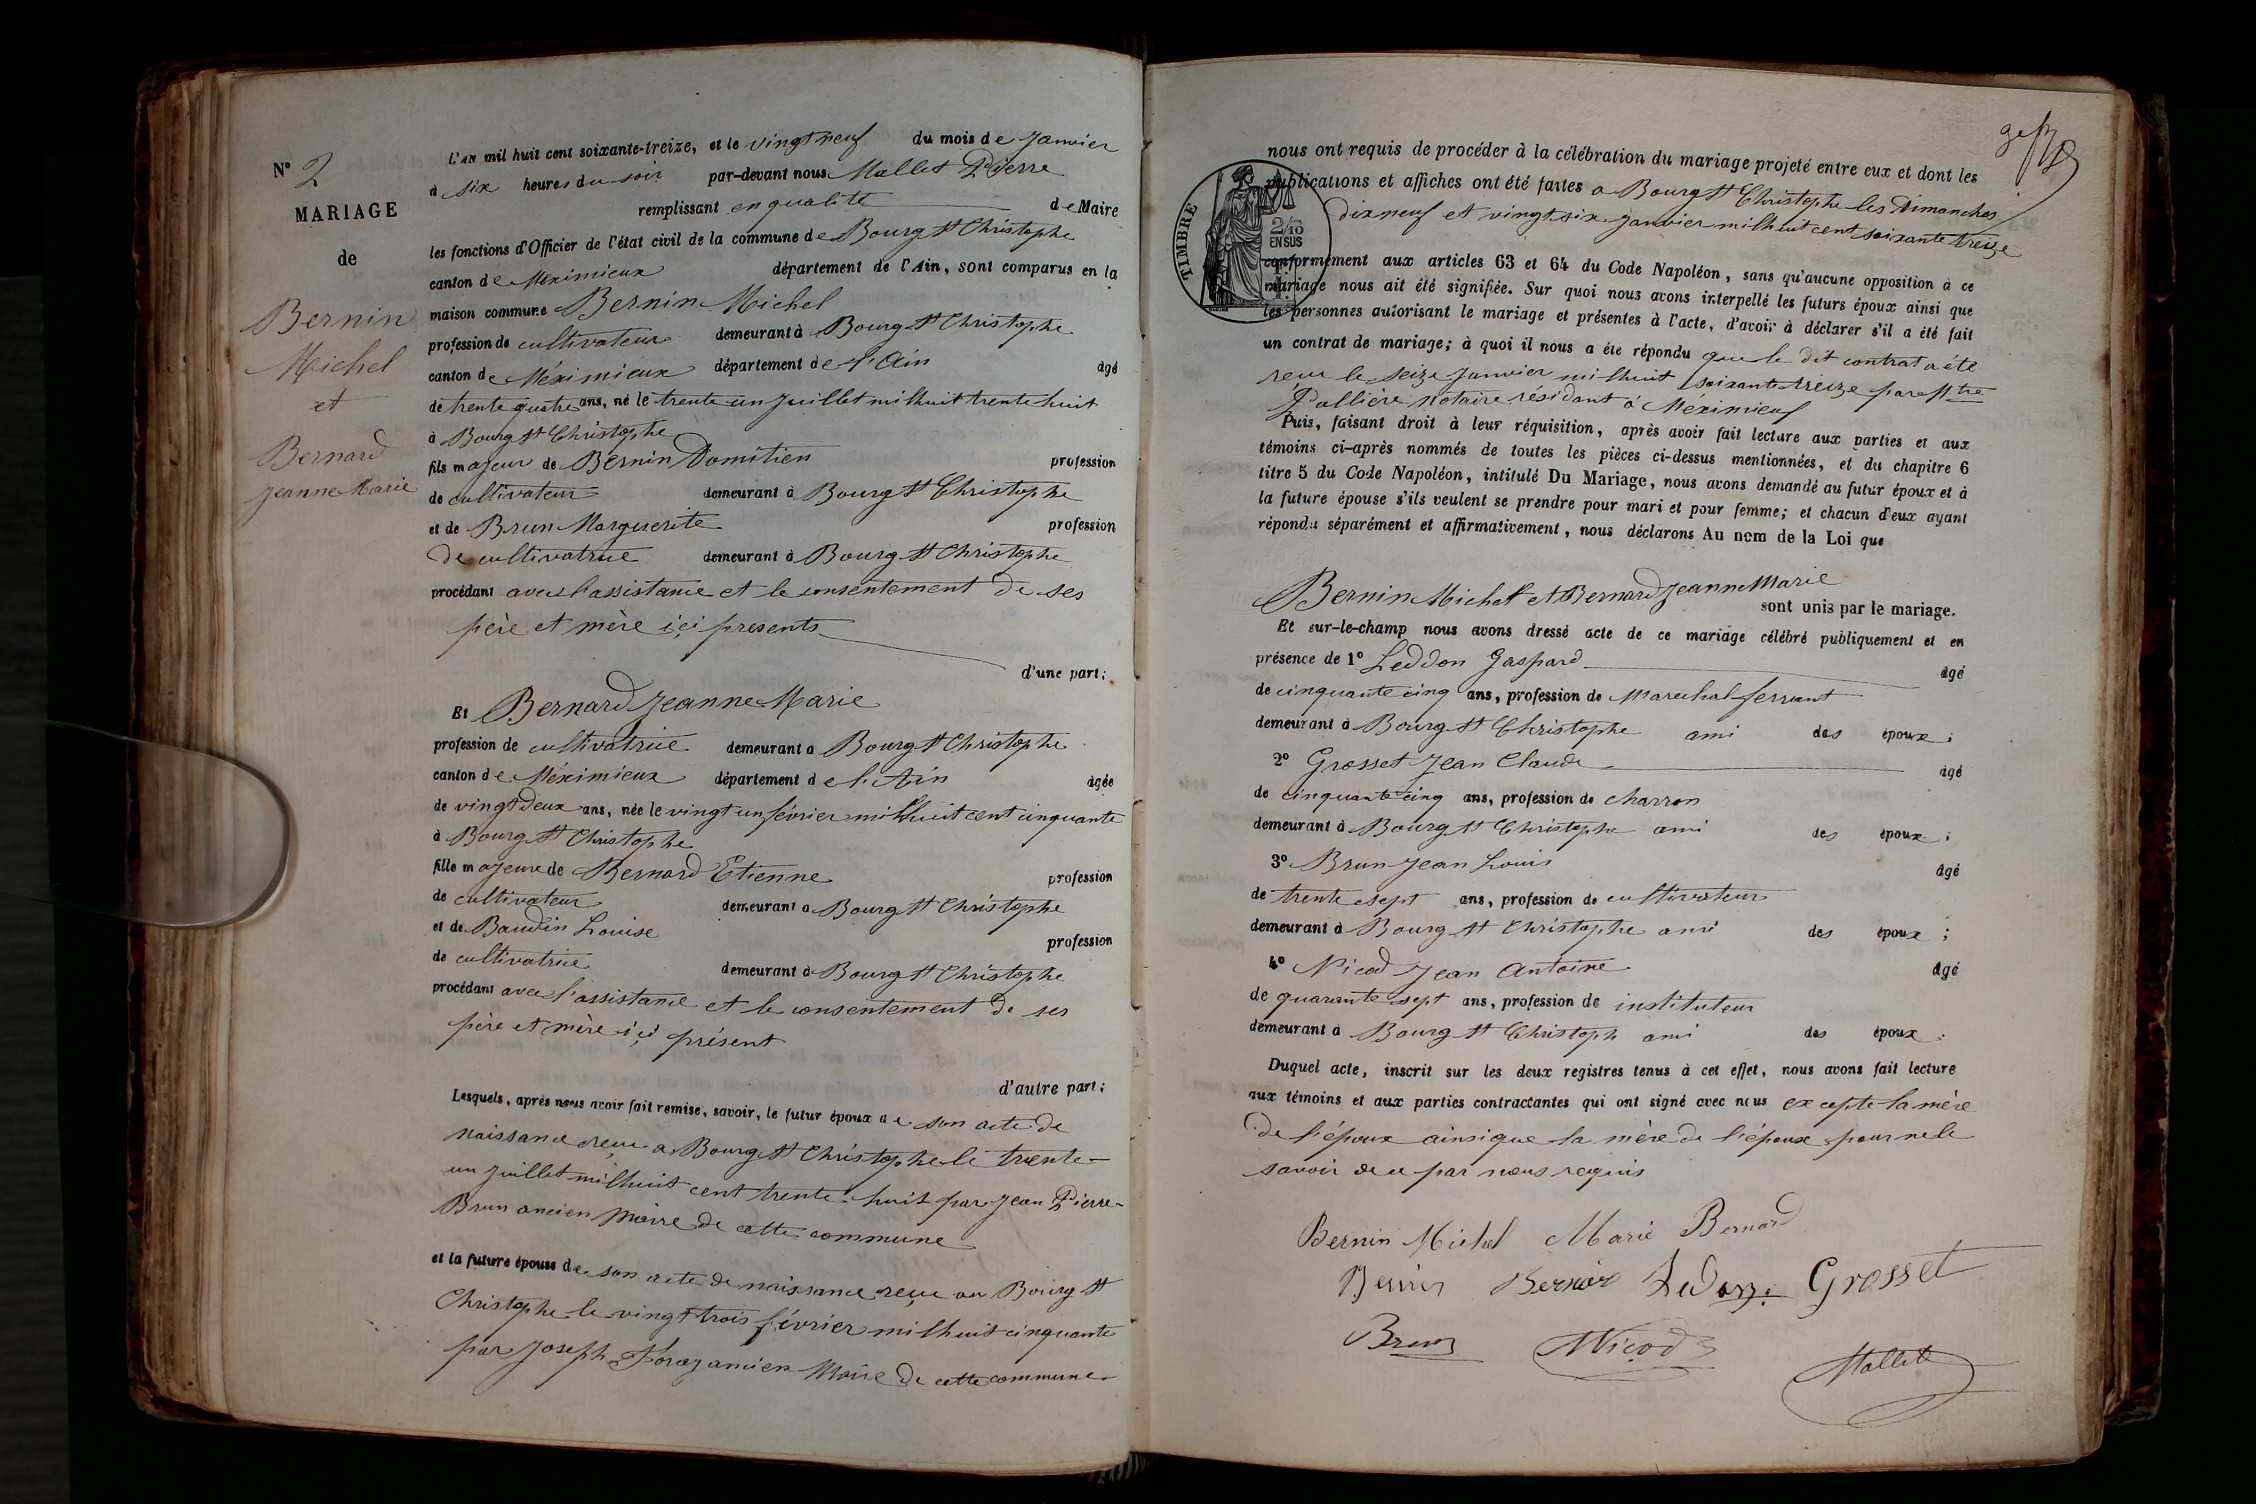 N° 2
MARIAGE
de
Bernin
Michel
et
Bernard
Jeanne Marie
L'AN mil huit cent soixante-treize, et le vingt neuf du mois de Janvier
à six heures du soir par-devant nous Mallet Pierre
remplissant en qualité de Maire
les fonctions d'Officier de l'état civil de la commune de Bourg St Christophe
canton de Méximieux département de l'Ain, sont comparus en la
maison commune Bernin Michel
profession de cultivateur demeurant à Bourg St Christophe
canton de Méximieux département de l'Ain âgé
de trente quatre ans, né le trente un Juillet mil huit trente huit
à Bourg St Christophe
fils majeur de Bernin Domitien profession
de cultivateur demeurant à Bourg St Christophe
et de Brun Marguerite profession
de cultivatrice demeurant à Bourg St Christophe
procédant avec l'assistance et le consentement de ses
père et mère içi presents
d'une part;
Et Bernard Jeanne Marie
profession de cultivatrice demeurant à Bourg St Christophe
canton de Méximieux département de l'Ain âgée
de vingt deux ans, née le vingt un février mil huit cent cinquante
à Bourg St Christophe
fille majeure de Bernard Etienne profession
de cultivateur demeurant à Bourg St Christophe
et de Baudin Louise profession
de cultivatrice demeurant à Bourg St Christophe
procédant avec l'assistance et le consentement de ses
père et mère içi présent
d'autre part;
Lesquels, après nous avoir fait remise, savoir, le futur époux de son acte de
naissance reçue a Bourg St Christophe le trente-
un Juillet mil huit cent trente-huit par Jean Pierre
Brun ancien Maire de cette commune
et la future épouse de son acte de naissance reçue au Bourg St
Christophe le vingt trois février mil huit cinquante
par Joseph ancien Maire de cette commune
nous ont requis de procéder à la célébration du mariage projeté entre eux et dont les
publications et affiches ont été faites a Bourg St Christophe les Dimanches
dix neuf et vingt six Janvier mil huit cent soixante treize
TIMBRE
2/10
EN SUS
conformément aux articles 63 et 64 du Code Napoléon, sans qu'aucune opposition à ce
mariage nous ait été signifiée. Sur quoi nous avons interpellé les futurs époux ainsi que
les personnes autorisant le mariage et présentes à l'acte, d'avoir à déclarer s'il a été fait
un contrat de mariage; à quoi il nous a été répondu que le dit contrat a été
reçu le seize Janvier mil huit soixante treize par Mtre
Pallière notaire résidant à Méximieux
Puis, faisant droit à leur réquisition, après avoir fait lecture aux parties et aux
témoins ci-après nommés de toutes les pièces ci-dessus mentionnées, et du chapitre 6
titre 5 du Code Napoléon, intitulé Du Mariage, nous avons demandé au futur époux et à
la future épouse s'ils veulent se prendre pour mari et pour femme; et chacun d'eux ayant
répondu séparément et affirmativement, nous déclarons Au nom de la Loi que
Bernin Michel et Bernard Jeanne Marie
sont unis par le mariage.
Et sur-le-champ nous avons dressé acte de ce mariage célébré publiquement et en
présence de 1° Leddon Gaspard âgé
de cinquante cinq ans, profession de Marechal ferrant
demeurant à Bourg St Christophe ami des époux;
2° Grosset Jean Claude âgé
de cinquante cinq ans, profession de charron
demeurant à Bourg St Christophe ami des époux;
3° Brun Jean Louis âgé
de trente sept ans, profession de cultivateur
demeurant à Bourg St Christophe ami des époux;
4° Nicod Jean Antoine âgé
de quarante sept ans, profession de instituteur
demeurant à Bourg St Christoph ami des époux.
Duquel acte, inscrit sur les deux registres tenus à cet effet, nous avons fait lecture
aux témoins et aux parties contractantes qui ont signé avec nous excepté la mère
de l'époux ainsi que la mère de l'épouse pour ne le
savoir de ce par nous requis
Bernin Michel Marie Bernard
Bernin Bernard Ledon Grosset
Brun Nicod
Mallet